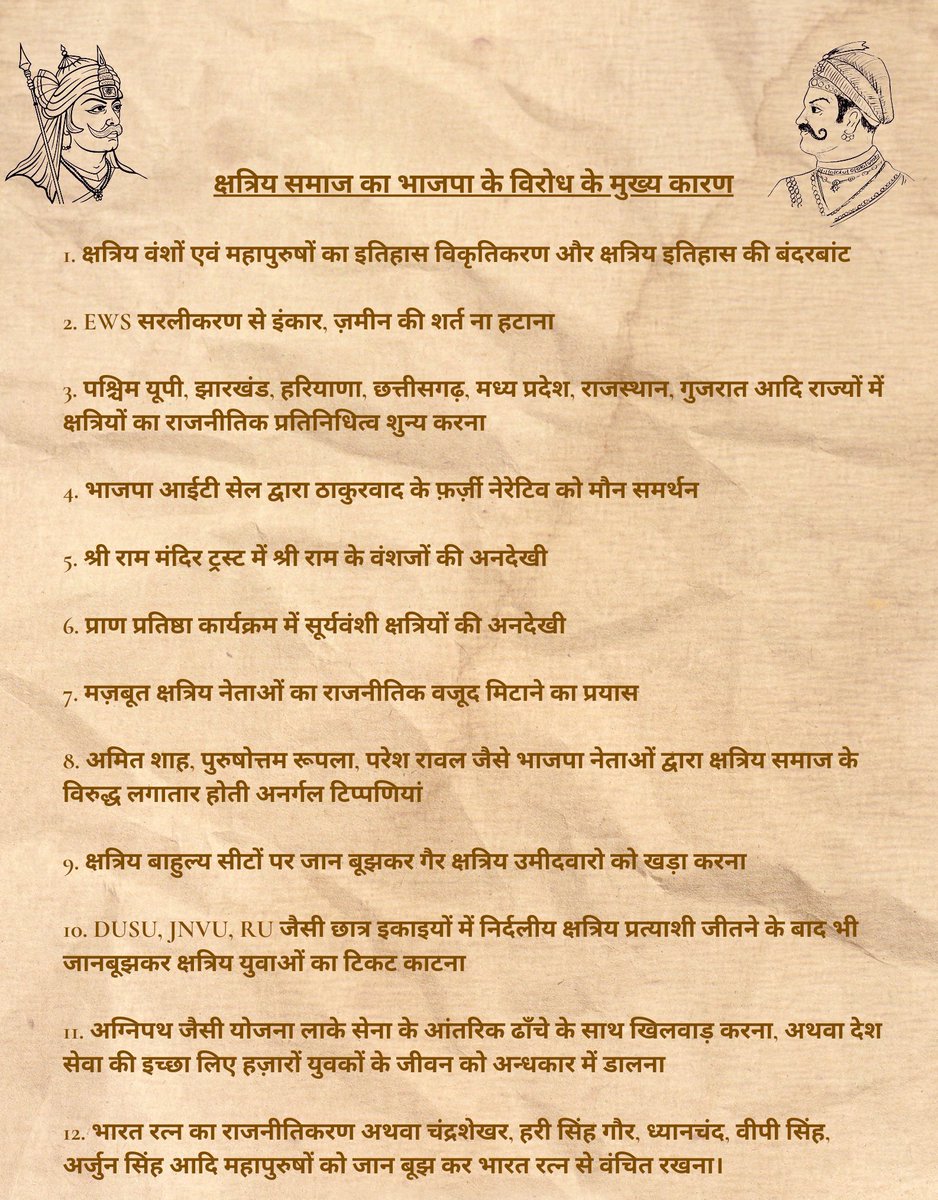 क्षत्रिय समाज का भाजपा के विरोध के मुख्य कारण
1. क्षत्रिय वंशों एवं महापुरुषों का इतिहास विकृतिकरण और क्षत्रिय इतिहास की बंदरबांट
2. EWS सरलीकरण से इंकार, ज़मीन की शर्त ना हटाना
3. पश्चिम यूपी, झारखंड, हरियाणा, छत्तीसगढ़, मध्य प्रदेश, राजस्थान, गुजरात आदि राज्यों में
क्षत्रियों का राजनीतिक प्रतिनिधित्व शुन्य करना
4. भाजपा आईटी सेल द्वारा ठाकुरवाद के फ़र्ज़ी नेरेटिव को मौन समर्थन
5. श्री राम मंदिर ट्रस्ट में श्री राम के वंशजों की अनदेखी
6. प्राण प्रतिष्ठा कार्यक्रम में सूर्यवंशी क्षत्रियों की अनदेखी
7. मज़बूत क्षत्रिय नेताओं का राजनीतिक वजूद मिटाने का प्रयास
8. अमित शाह, पुरुषोत्तम रूपला, परेश रावल जैसे भाजपा नेताओं द्वारा क्षत्रिय समाज के
विरुद्ध लगातार होती अनर्गल टिप्पणियां
9. क्षत्रिय बाहुल्य सीटों पर जान बूझकर गैर क्षत्रिय उमीदवारो को खड़ा करना
10. DUSU, JNVU, RU जैसी छात्र इकाइयों में निर्दलीय क्षत्रिय प्रत्याशी जीतने के बाद भी
जानबूझकर क्षत्रिय युवाओं का टिकट काटना
11. अग्निपथ जैसी योजना लाके सेना के आंतरिक ढाँचे के साथ खिलवाड़ करना, अथवा देश
सेवा की इच्छा लिए हज़ारों युवकों के जीवन को अन्धकार में डालना
12. भारत रत्न का राजनीतिकरण अथवा चंद्रशेखर, हरी सिंह गौर, ध्यानचंद, वीपी सिंह,
अर्जुन सिंह आदि महापुरुषों को जान बूझ कर भारत रत्न से वंचित रखना।